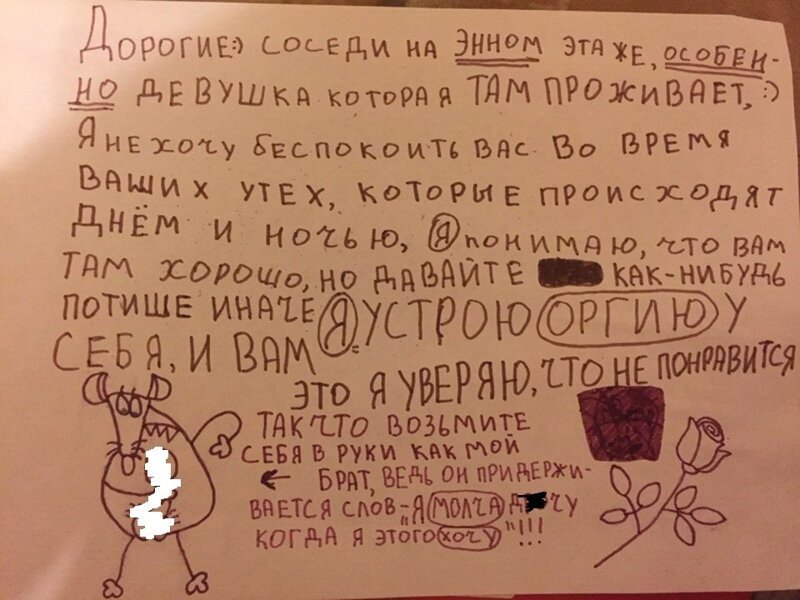 Дорогие:) соседи на энном этаже, особен-
но девушка которая там проживает, :)
Я не хочу беспокоить вас во время
ваших утех, которые происходят
днём и ночью, я понимаю, что вам
там хорошо, но давайте как-нибудь
потише иначе я устрою оргию у
себя, и вам
это я уверяю, что не понравится
так что возьмите
себя в руки как мой
← брат, ведь он придержи-
вается слов - "я молча д чу
когда я этого хочу"!!!